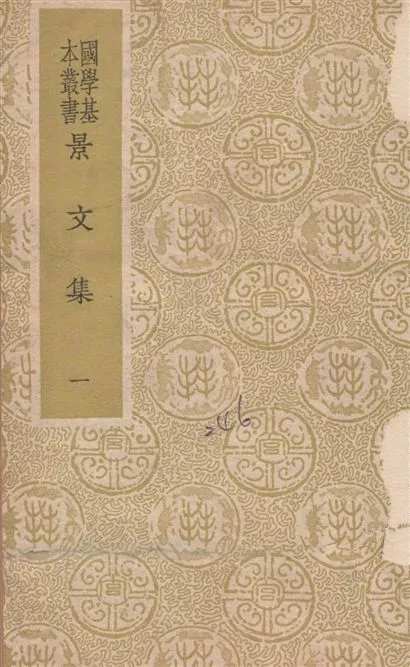 國學基
本叢書
景文集
一
246